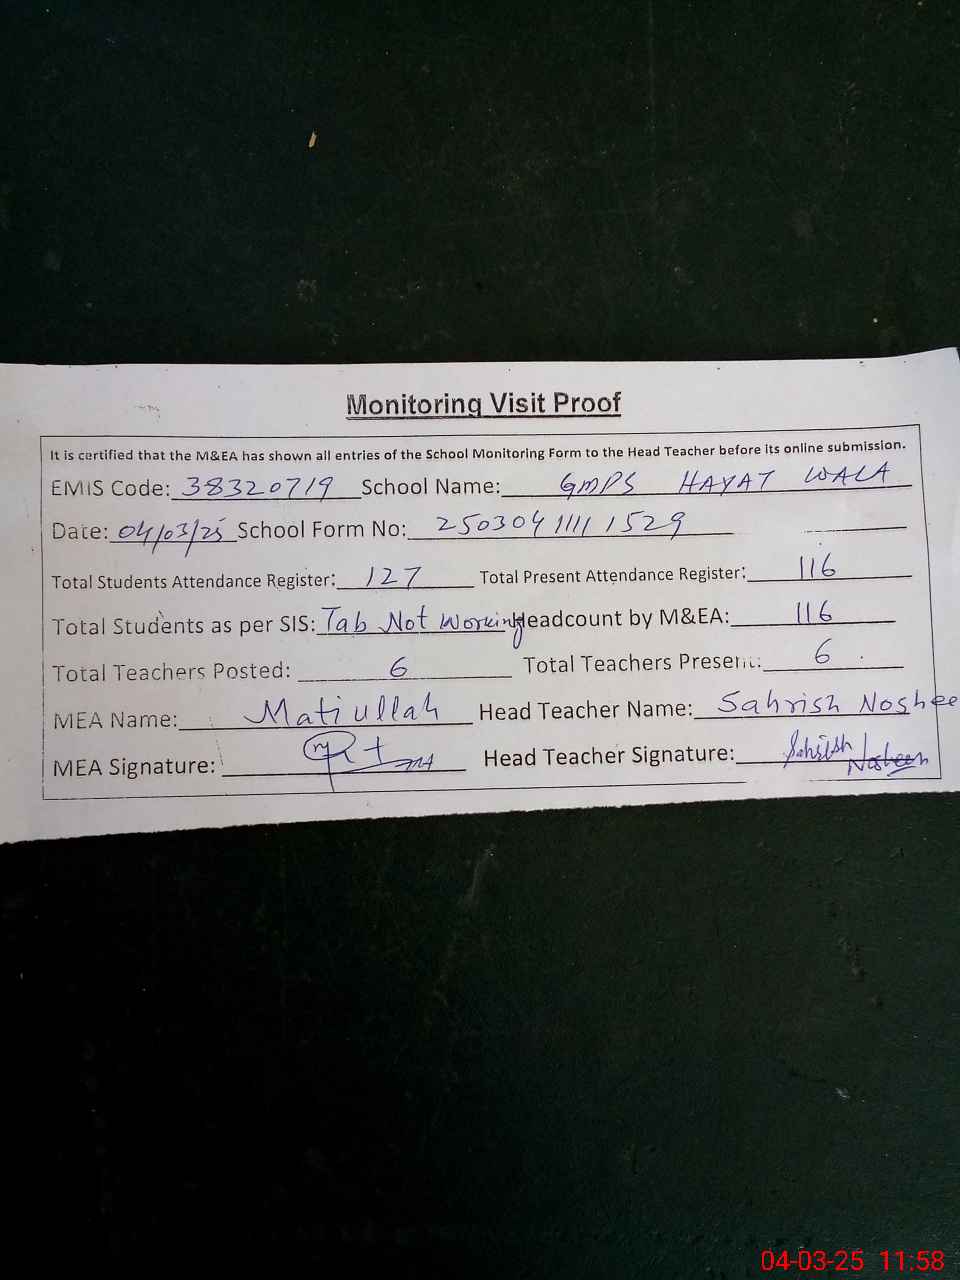 Monitoring Visit Proof
It is certified that the M&EA has shown all entries of the School Monitoring Form to the Head Teacher before its online submission.
EMIS Code: 38320719 School Name: GMPS HAYAT WALA
Date: 04/03/25 School Form No: 25030411111529
Total Students Attendance Register: 127 Total Present Attendance Register: 116
Total Students as per SIS: Tab Not Working Headcount by M&EA: 116
Total Teachers Posted: 6 Total Teachers Present: 6
MEA Name: Matiullah Head Teacher Name: Sahrish Noshee
MEA Signature: Head Teacher Signature: Sahrish Nosheen
04-03-25 11:58